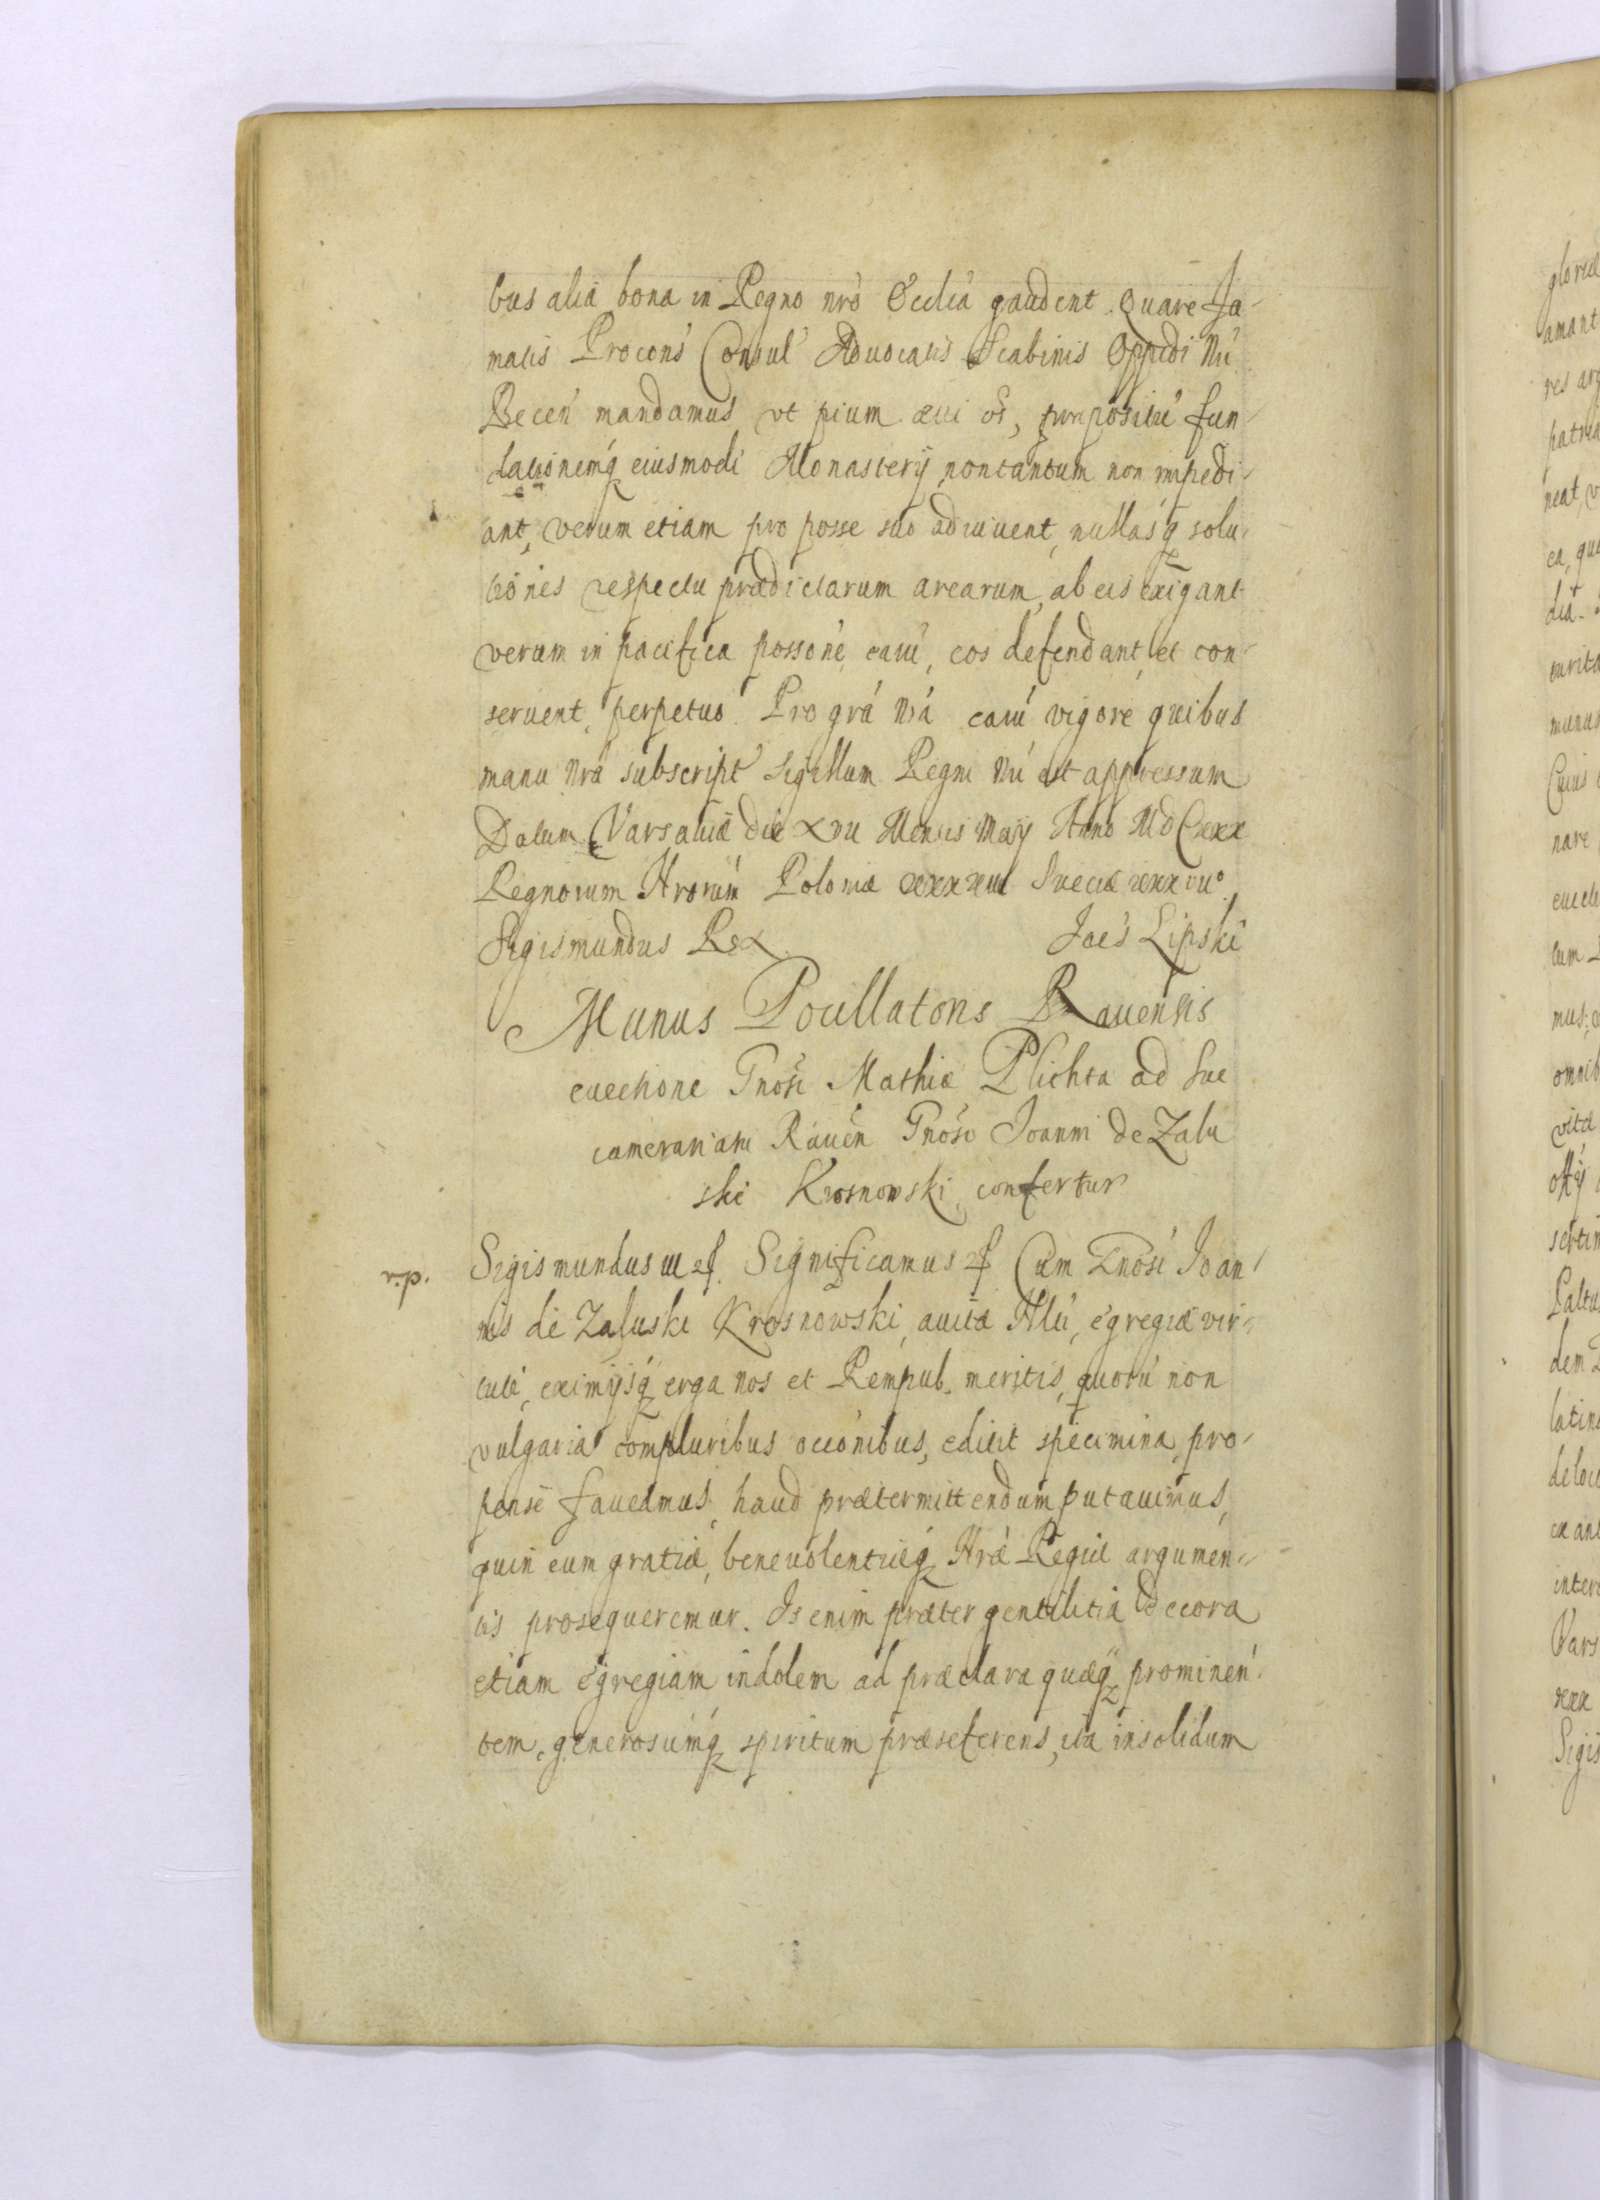 bus alia bona in Regno nrō Ecclia gaudent. Quare Fa-
matis Procons̄ Consul Aduocatis Scabinis Oppidi Nri
Becen̄ mandamus, vt pium cui os, propositū fun-
dationemq̧ eiusmodi Monasterij, non tantum non impedi-
ant, verum etiam pro posse suo adiuuent, nullasq̧ solu-
tiones respectu prædictarum arearum, ab eis exigant
verum in pacifica possōne earū, eos defendant, et con-
seruent, perpetuo. Pro grā nrā earū vigore quibus
manu nrā subscript̄ sigillum Regni Nri est appressum
Datum Varsauiæ die XVII Mensis Maij Anno MDCXXX
Regnorum Nrorum Poloniæ XXXXIII Sueciæ XXXVIIº
Sigismundus Rex Joēs Lipski
Munus Pocillatoris Rauensis
euectione Gnosi Mathiæ Plichta ad Suc
camerariatū Rauen̄ Gnoso Joanni de Zalu
ski Krosnowski confertur
dia.
Sigismundus III etc. Significamus etc Cum Gnosi Joan-
nis de Zaluski Krosnowski, auitæ Nlti, egregiæ vir-
tuti, eximijsq̧ erga nos et Rempub. meritis, quorū non
vulgaria compluribus occonibus, edidit specimina, pro-
pense faueamus, haud prætermittendum putauimus,
quin eum gratiæ, beneuolentiæq̧ Nræ Regiæ argumen-
tis prosequeremur. Is enim præter gentilitia decora
etiam egregiam indolem ad præclara quæq̧ prominen-
tem, generosumq̧ spiritum præseferens, ita insolidum